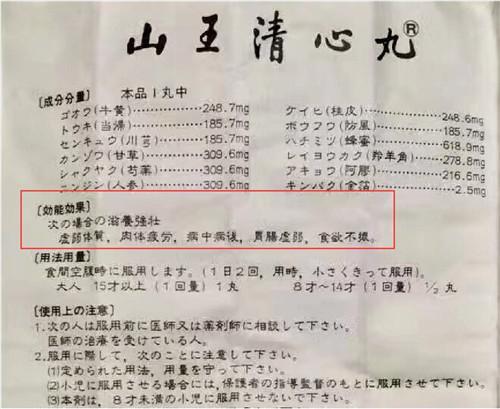 山王清心丸®
〔成分分量〕 本品1丸中
ゴオウ(牛黄)…………248.7mg
トウキ(当帰)…………185.7mg
センキュウ(川芎)……185.7mg
カンゾウ(甘草)………309.6mg
シャクヤク(芍薬)……309.6mg
ニンジン(人参)………309.6mg
ケイヒ(桂皮)…………248.6mg
ボウフウ(防風)………185.7mg
ハチミツ(蜂蜜)………618.9mg
レイヨウカク(羚羊角)…278.8mg
アキョウ(阿膠)………216.6mg
キンパク(金箔)…………2.5mg
〔効能効果〕
次の場合の滋養強壮
虚弱体質,肉体疲労,病中病後,胃腸虚弱,食欲不振。
〔用法用量〕
食間空腹時に服用します。(1日2回,用時,小さくきって服用。)
大人 15才以上(1回量)1丸 8才〜14才(1回量)1/2丸
〔使用上の注意〕
1.次の人は服用前に医師又は薬剤師に相談して下さい。
医師の治療を受けている人。
2.服用に際して,次のことに注意して下さい。
(1)定められた用法,用量を守って下さい。
(2)小児に服用させる場合には,保護者の指導監督のもとに服用させて下さい。
(3)本剤は,8才未満の小児に服用させないで下さい。